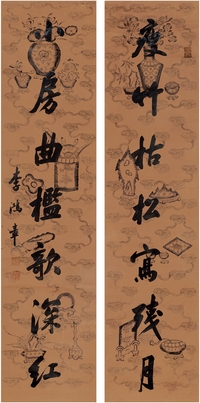 瘦竹枯松寫殘月
小房曲檻歌深紅
李鴻章